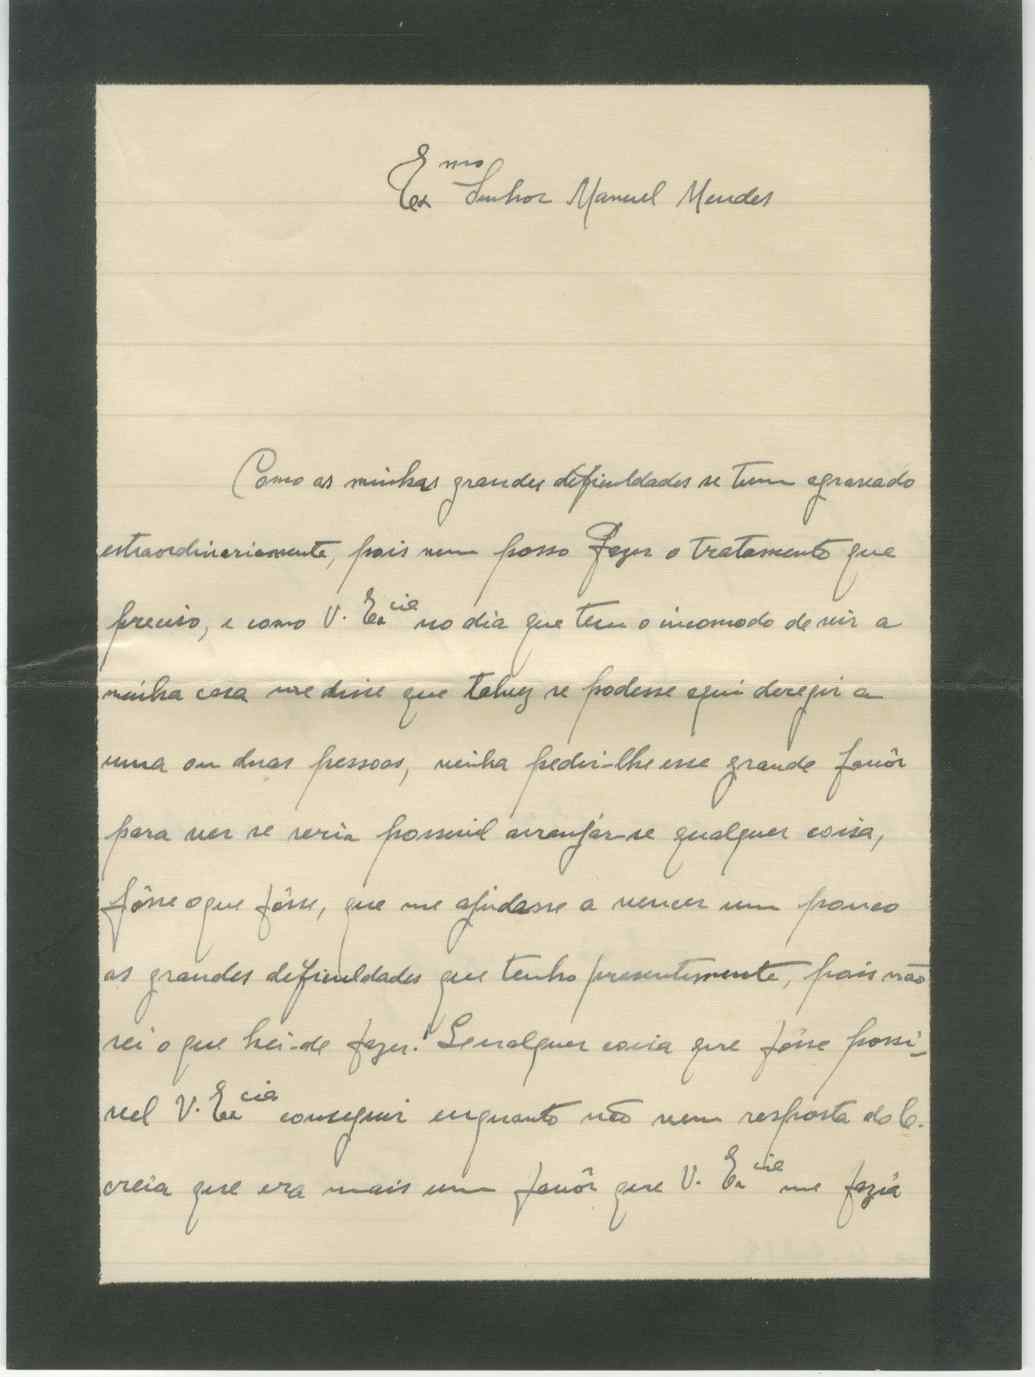 Ex.mo Senhor Manuel Mendes
Como as minhas grandes dificuldades se tem agravado
estraordinariamente, pois nem posso fazer o tratamento que
preciso, e como V. Ex.cia no dia que teve o incomodo de vir a
minha casa me disse que talvez se podesse aqui deregir a
uma ou duas pessoas, vinha pedir-lhe esse grande favôr
para ver se seria possivil arranjár-se qualquer coisa,
fôsse o que fôsse, que me ajudasse a vencer um pouco
as grandes deficuldades que tenho presentemente, pois não
sei o que hei-de fazer! Se qualquer coisa que fôsse possi-
vel V. Ex.cia conseguir enquanto não vem resposta do C.
creia que era mais um favôr que V. Ex.cia me fazia